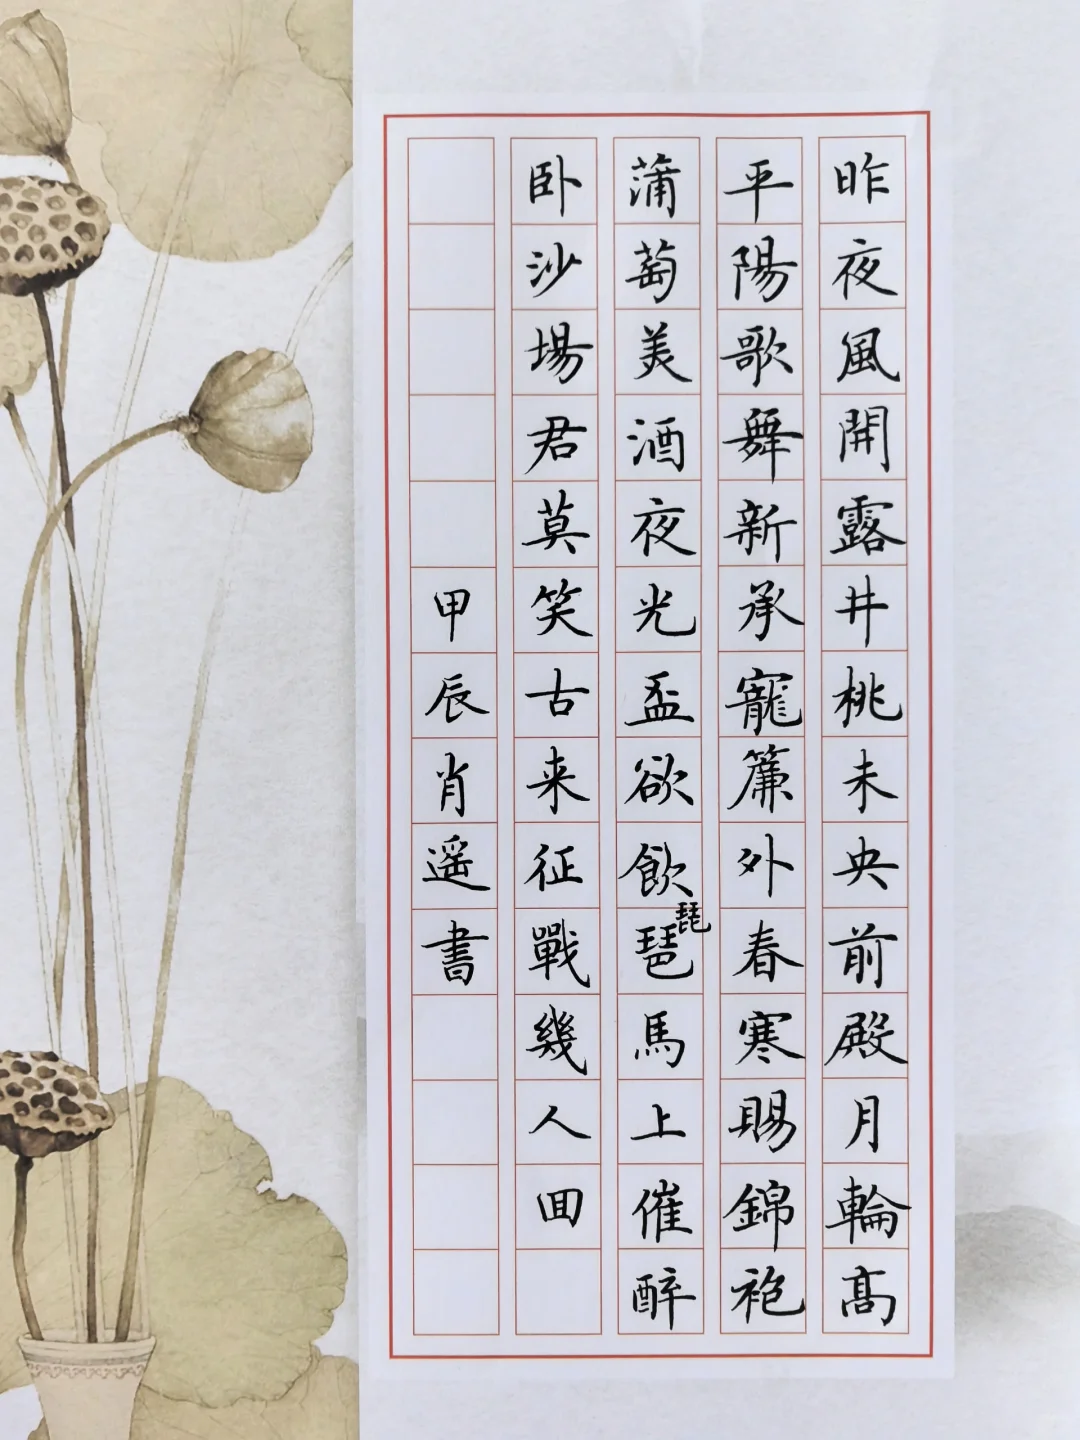 昨夜風開露井桃未央前殿月輪高
平陽歌舞新承寵簾外春寒賜錦袍
蒲萄美酒夜光盃欲飲琵琶馬上催醉
卧沙場君莫笑古来征戰幾人回
甲辰肖遥書